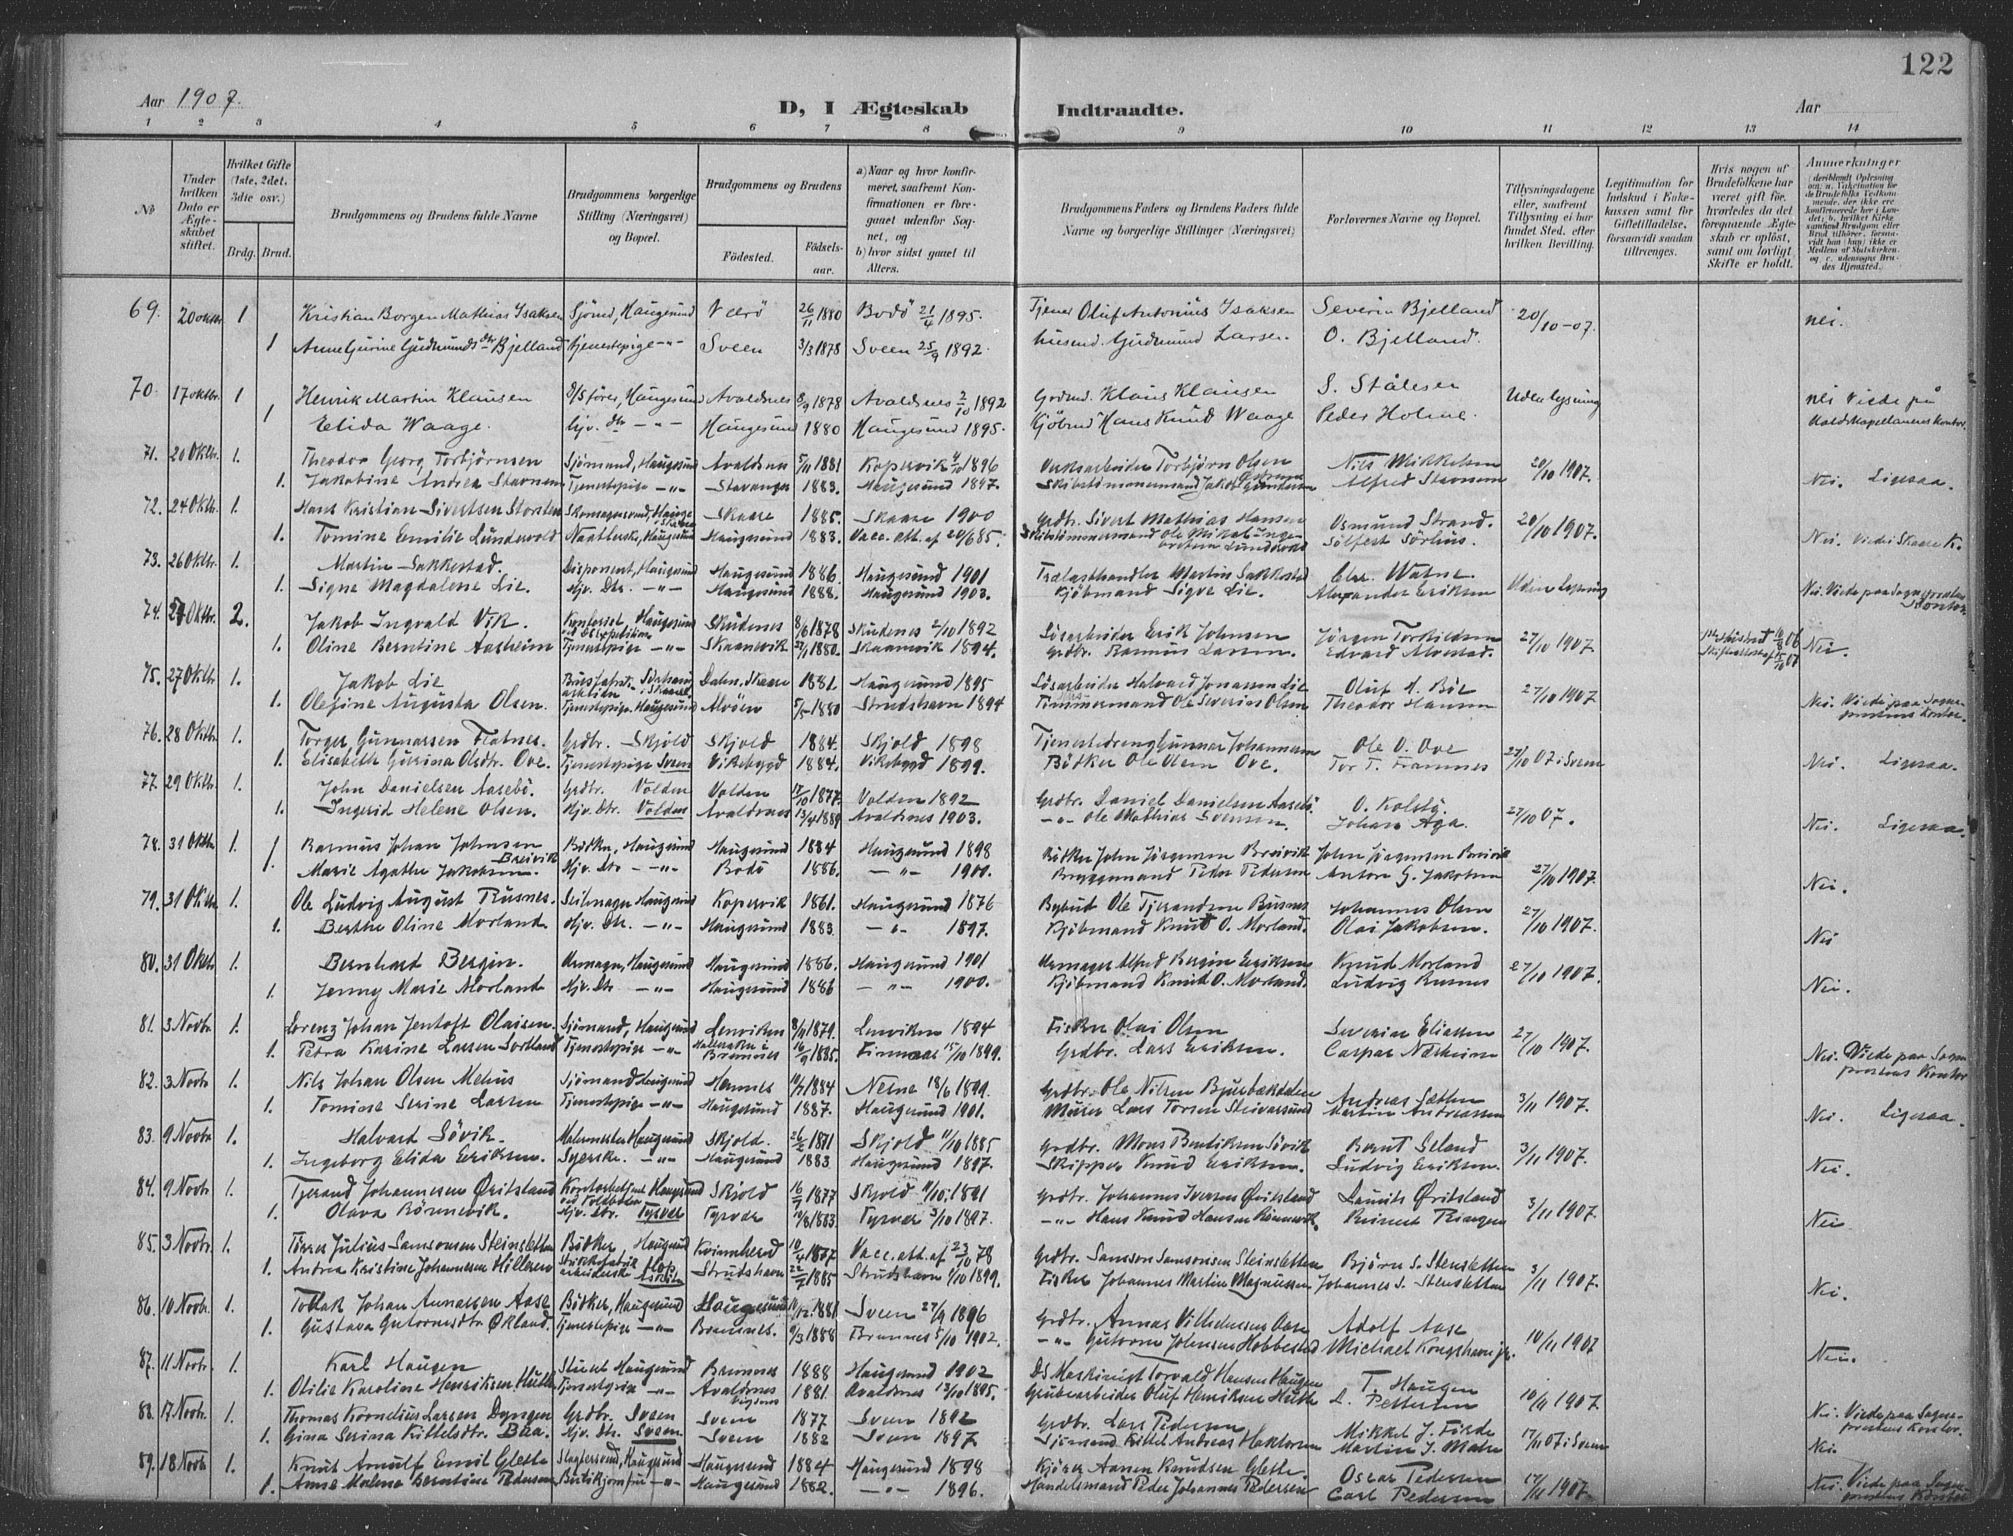 122
Aar 1907.
D, I Ægteskab Indtraadte.
Aar
1 2 3 4 5 6 7 8 9 10 11 12 13 14
No
Under hvilken Dato er Ægteskabet stiftet.
Hvilket Gifte (1ste, 2det, 3die osv.)
Brdg. Brud.
Brudgommens og Brudens fulde Navne
Brudgommens borgerlige Stilling (Næringsvei) og Bopæl.
Brudgommens og Brudens
Fødested.
Fødselsaar.
a) Naar og hvor konfirmeret, saafremt Konfirmationen er foregaaet udenfor Sognet, og
b) hvor sidst gaaet til Alters.
Brudgommens Faders og Brudens Faders fulde Navne og borgerlige Stillinger (Næringsvei)
Forlovernes Navne og Bopæl.
Tillysningsdagene eller, saafremt Tillysning ei har fundet Sted, efter hvilken Bevilling.
Legitimation for Indskud i Enkekassen samt for Giftetilladelse, forsaavidt saadan tiltrænges.
Hvis nogen af Brudefolkene har været gift før, hvorledes da det foregaaende Ægteskab er opløst, samt om lovligt Skifte er holdt.
Anmerkninger
69. 20 oktbr 1 Kristian Borgen Mathias Isaksen Sjömd, Haugesund Værö 26/11 1880 Bodö 21/4 1895. Tjener Oluf Antonius Isaksen Severin Bjelland 20/10-07. nei.
1 Anne Gurine Gudmundsdtr Bjelland tjenestepige -"- Sveen 3/3 1878 Sveen 25/9 1892. husmd. Gudmund Larsen O. Bjelland.
70. 17 oktbr. 1 Henrik Martin Klausen D/S förer, Haugesund Avaldsnes 8/9 1878 Avaldsnes 2/10 1892 Grdmd. Klaus Klausen S. Stålesen Uden lysning nei Viede på
1 Elida Waage. hjv. dtr -"- Haugesund 1880 Haugesund 1895. Kjöbmd Hans Knud Waage Peder Holme. Kaldskapellanens Kontor.
71. 20 Oktbr. 1. Theodor Georg Torbjørnsen Sjömand, Haugesund Avaldsnes 5/11 1881 Kopervik 4/10 1896 Torbjørn Olsen Nils Mikkelsen 20/10 1907. Nei. Ligesaa.
1. Jakobine Andrea Tjenestepige -"- Stavanger 1883. Haugesund 1897. Alfred
72. 24 Oktbr 1. Hans Kristian Sivertsen Skaare 1885. Skaare 1900 Grdbr. Sivert Mathias Hansen Osmund Strand. 20/10 1907.
1. Tomine Emilie Lundevold Haugesund 1883. Vacc. att. af 20/6 85. Sölfest Sörhus. Nei. Viede i Skaare K.
73. 26 Oktbr 1. Martin Sakkestad. Disponent, Haugesund Haugesund 1886. Haugesund 1901 Trælasthandler Martin Sakkestad Chr. Watne. Uden lysning
1. Signe Magdalene Lie. Hjv. Dtr. -"- Haugesund 1888. Haugesund 1903. Kjöbmand Sigve Lie. Alexander Eriksen Nei. Viede paa Sogneprestens Kontor
74. 27 Oktbr. 2. Jakob Ingvald Vik. Haugesund Skudenes 8/6 1878 Skudenes 2/10 1892 Lösarbeider Erik Johnsen Jörgen Torkildsen 27/10 1907
1. Oline Berntine Aasheim Tjenestepige -"- Skaanevik 1880. Skaanevik 1894. Grdbr. Rasmus Larsen. Edvard Alvestad. Nei
75. 27 Oktbr 1. Jakob Lie Dalen, Skaare 1881 Haugesund 1895 Lösarbeider Halvard Jonassen Lie Oluf A. Böe 27/10 1907
1. Olefine Augusta Olsen. Tjenestepige, Haugesund Alvöen 5/5 1880 Strudshavn 1894 Timmermand Ole Severin Olsen Theodor Hansen Nei. Viede paa Sogneprestens Kontor.
76. 28 Oktbr. 1. Torger Gunnarsen Flatnes. Grdbr. Skjold Skjold 1884. Skjold 1898 Tjenestedreng Gunnar Johannesen Ole O. Ove 27/10 07 i Sveen
1. Elisabeth Gurina Olsdtr. Ove. Tjenestepige Sveen Vikebygd 1884. Vikebygd 1899. Bödker Ole Olsen Ove. Tor T. Framnes Nei. Ligesaa.
77. 29 Oktbr 1. John Danielsen Aasebö. Grdbr. Völden 1877. 1892 Grdbr. Daniel Danielsen Aasebö O. Kolstö. 27/10 07.
1. Ingerid Helene Olsen. Hjv. Dtr. Avaldsnes 13/4 1889 Avaldsnes 1903. -"- Ole Mathias Svensen. Johan Aga. Nei. Ligesaa.
78. 31 Oktbr 1. Rasmus Johan Johnsen Breivik Bödker, Haugesund Haugesund 1884 Haugesund 1898 Bödker John Jörgensen Breivik John Jörgensen Breivik 27/10 1907.
1. Marie Agathe Jakobsen. Hjv. Dtr -"- Bodö 1886. -"- 1900. Bryggemand Peder Pedersen Anton G. Jakobsen Nei.
79. 31 Oktbr 1. Ole Ludvig August Rusnes. Seilmager Haugesund Kopervik 1861. Haugesund 1876 Bybud Ole Tjerandsen Rusnes Johannes Olsen 27/10 1907.
1. Berthe Oline Morland Hjv. Dtr. -"- Haugesund 1883. -"- 1897. Kjöbmand Knut O. Morland. Olai Jakobsen. Nei
80. 31 Oktbr 1. Bernhard Bergin. Urmager, Haugesund Haugesund 1886. Haugesund 1901 Urmager Alfred Bergin Eriksen Knud Morland 27/10 1907
1. Jenny Marie Morland Hjv. Dtr -"- Haugesund 1886 -"- 1900. Kjöbmand Knut O. Morland. Ludvig Rusnes Nei.
81. 3 Novbr 1. Lorenz Johan Jentoft Olaisen. Sjömand, Haugesund Lenviken 8/11 1879. Lenviken 1894 Fisker Olai Olsen Severin Eliassen 27/10 1907.
1. Petra Karine Larsen Sortland Tjenestepige -"- Brönnöes 16/9 1885. 15/10 1899. Grdbr. Lars Eriksen. Caspar Næsheim Nei. Viede paa Sogneprestens Kontor
82. 3 Novbr 1. Nils Johan Olsen Melius Sjömand Haugesund Hemnes 10/7 1884 Nesne 18/6 1899. Grdbr. Ole Nilsen Bjurbækdalen Andreas Sætten 3/11 1907.
1. Tomine Serine Larsen Tjenestepige -"- Haugesund 1887. Haugesund 1901. Murer Lars Torsen Steivarsund Martin Andreassen Nei. Ligesaa.
83. 9 Novbr 1. Halvard Sövik. Malermester Haugesund Skjold. 26/2 1871 Skjold 11/10 1885 Grdbr. Mons Bentiksen Sövik Bernt Seland 3/11 1907.
1. Ingeborg Elida Eriksen. Syerske. -"- Haugesund 1883 Haugesund 1897. Skipper Knud Eriksen. Ludvig Eriksen. Nei.
84. 9 Novbr. 1. Tjerand Johannesen Øritsland Haugesund Skjold 16/9 1877 Skjold 11/10 1891 Grdbr. Johannes Iversen Øritsland Lauritz Øritsland 3/11 1907.
1. Olava Rönnevik. Hjv. Dtr. Tysvær Tysvær 19/8 1883. Tysvær 3/10 1897. -"- Hans Knud Hansen Rönnevik. Reinert Ringen Nei
85. 3 Novbr. 1. Tørres Julius Samsonsen Steinsletten Bödker Haugesund Kvinnherred 10/4 1877 Vacc. att. af 23/10 78 Grdbr. Samson Samsonsen Steinsletten Björn S. Stensletten 3/11 1907.
1. Andrea Kristine Johannesen Hilleren Strudshavn 22/7 1885 Strudshavn 1/10 1899. Fisker Johannes Martin Magnussen Johannes S. Stensletten Nei.
86. 10 Novbr. 1. Tollak Johan Annassen Aase Bödker, Haugesund Haugesund 10/12 1881 Sveen 27/9 1896 Grdbr. Annas Vilhelmsen Aase Adolf Aase 10/11 1907
1. Gustava Gutormsdtr Økland. Tjenestepige -"- Bremnes. 9/3 1888 Bremnes 5/10 1902. -"- Gutorm Johnsen Hobbesta Michael Kongshavn jr. Nei.
87. 11 Novbr. 1. Karl Haugen Stuert Haugesund Bremnes 1888 Haugesund 1902 DS Maskinist Torvald Hansen Haugen T. Haugen 10/11 1907
1. Otilie Karoline Henriksen Huth Tjenestepige -"- Avaldsnes 1881 Avaldsnes 13/10 1895. Grubearbeider Oluf Henriksen Huth L. Pettersen Nei. Viede paa Sogneprestens Kontor.
88. 17 Novbr. 1. Thomas Kornelius Larsen Dyngen Grdbr. Sveen Sveen 1877 Sveen 1892 Grdbr. Lars Pedersen Mikkel J. Förde 17/11 07 i Sveen
1. Gina Serina Kittelsdtr. Bua. Hjv. Dtr. Sveen Sveen 1882 Sveen 1897 Sjömand Kittel Andreas Haktorsen Martin J. Mæhre Nei
89. 18 Novbr 1. Knut Arnulf Emil Glette Haugesund Haugesund 1884 Haugesund 1898 Kjörer Aanen Knudsen Glette. Oscar Pedersen 17/11 1907.
1. Anne Malene Berntine Pedersen -"- Haugesund 1882. -"- 1896. Handelsmand Peder Johannes Pedersen Carl Pedersen Nei. Viede paa Sogneprestens Kontor